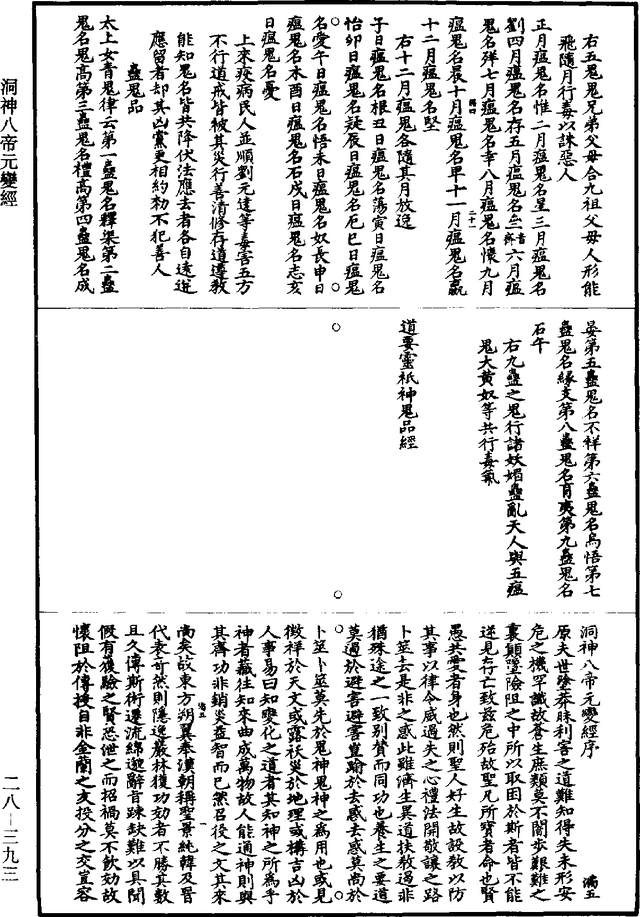 右五鬼鬼兄弟父母合九祖父母人形能
飛隨月行毒以誅惡人
正月瘟鬼名惟二月瘟鬼名星三月瘟鬼名
劉四月瘟鬼名存五月瘟鬼名 六月瘟
鬼名殍七月瘟鬼名幸八月瘟鬼名懷九月
瘟鬼名晨十月瘟鬼名卑十一月瘟鬼名羸
十二月瘟鬼名堅
右十二月瘟鬼各隨其月放逸
子日瘟鬼名根丑日瘟鬼名蕩寅日瘟鬼名
怡卯日瘟鬼名疑辰日瘟鬼名厄巳日瘟鬼
名愛午日瘟鬼名悟未日瘟鬼名奴長申日
瘟鬼名木酉日瘟鬼名石戌日瘟鬼名志亥
日瘟鬼名憂
上來疫病民人並順劉元達等毒害五方
不行道戒皆被其災行善清修存道遵教
能知鬼名皆共降伏法應去者各自遠逝
應留者却其凶黨更相約勑不犯善人
蠱鬼品
太上女青鬼律云第一蠱鬼名釋渠第二蠱
鬼名鬼高第三蠱鬼名禮高第四蠱鬼名成
晏第五蠱鬼名不祥第六蠱鬼名烏悟第七
蠱鬼名緣支第八蠱鬼名育夷第九蠱鬼名
石午
右九蠱之鬼行諸妖媚蠱亂天人與五瘟
鬼大黃奴等共行毒氣
道要靈祇神鬼品經
洞神八帝元變經序
滿五
原夫世墜莽昧利害之道難知得失未形安
危之機罕識故養生庶類莫不闇步艱難之
裏顛墜險阻之中所以取困於斯者皆不能
逆見存亡致兹危殆故聖凡所寳者命也賢
愚共愛者身也然則聖人好生故設敎以防
其事以律令威過失之心禮法開敬讓之路
卜筮去是非之惑此雖濟生異道扶敎過非
猶殊途之一致別贊而同功也養生之要道
莫過於避害避害豈踰於去惑去惑莫尚於
卜筮卜筮莫先於鬼神鬼神之為用也或見
徵祥於天文或露祅災於地理或構吉凶於
人事易曰知變化之道者其知神之所為乎
神者藏往知來曲成萬物故人能通神則與
其齊功非銷災益智而已然召役之文其來
尚矣故東方朔翼奉漢朝稱聖景純韓友晉
代表竒然則隱逸巖林獲功効者不勝其數
且久傳斯術遷流綿邈辭旨踈缺難以具聞
假有獲驗之賢恐泄之而招禍莫不飲効故
懷阻於傳授自非金蘭之友投分之交豈容
洞神八帝元變經
二八－三九三